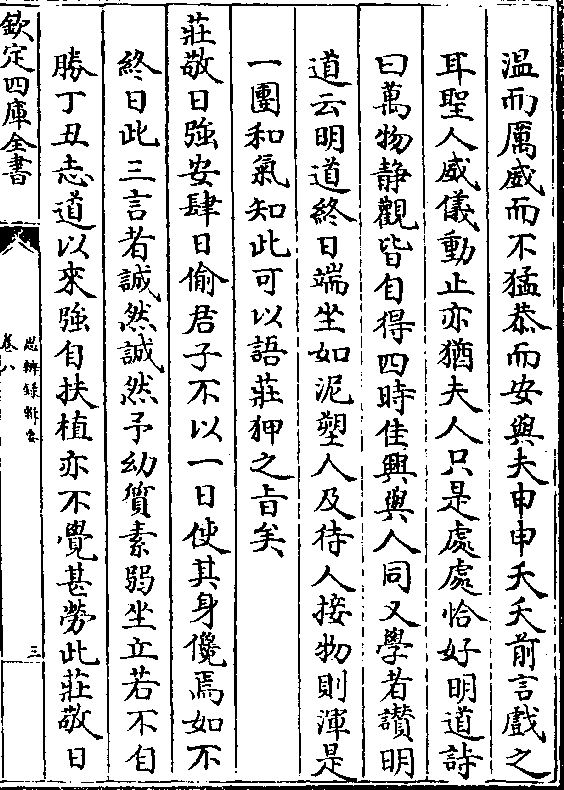 溫而厲威而不猛恭而安與夫申申夭夭前言戲之
耳聖人威儀動止亦猶夫人只是處處恰好明道詩
曰萬物静觀皆自得四時佳興與人同又學者讚明
道云明道終日端坐如泥塑人及待人接物則渾是
一團和氣知此可以語莊狎之旨矣
莊敬日強安肆日偷君子不以一日使其身儳焉如不
終日此三言者誠然誠然予幼質素弱坐立若不自
勝丁丑志道以來強自扶植亦不覺甚勞此莊敬日
欽定四庫全書
思辨錄輯要
卷八
三